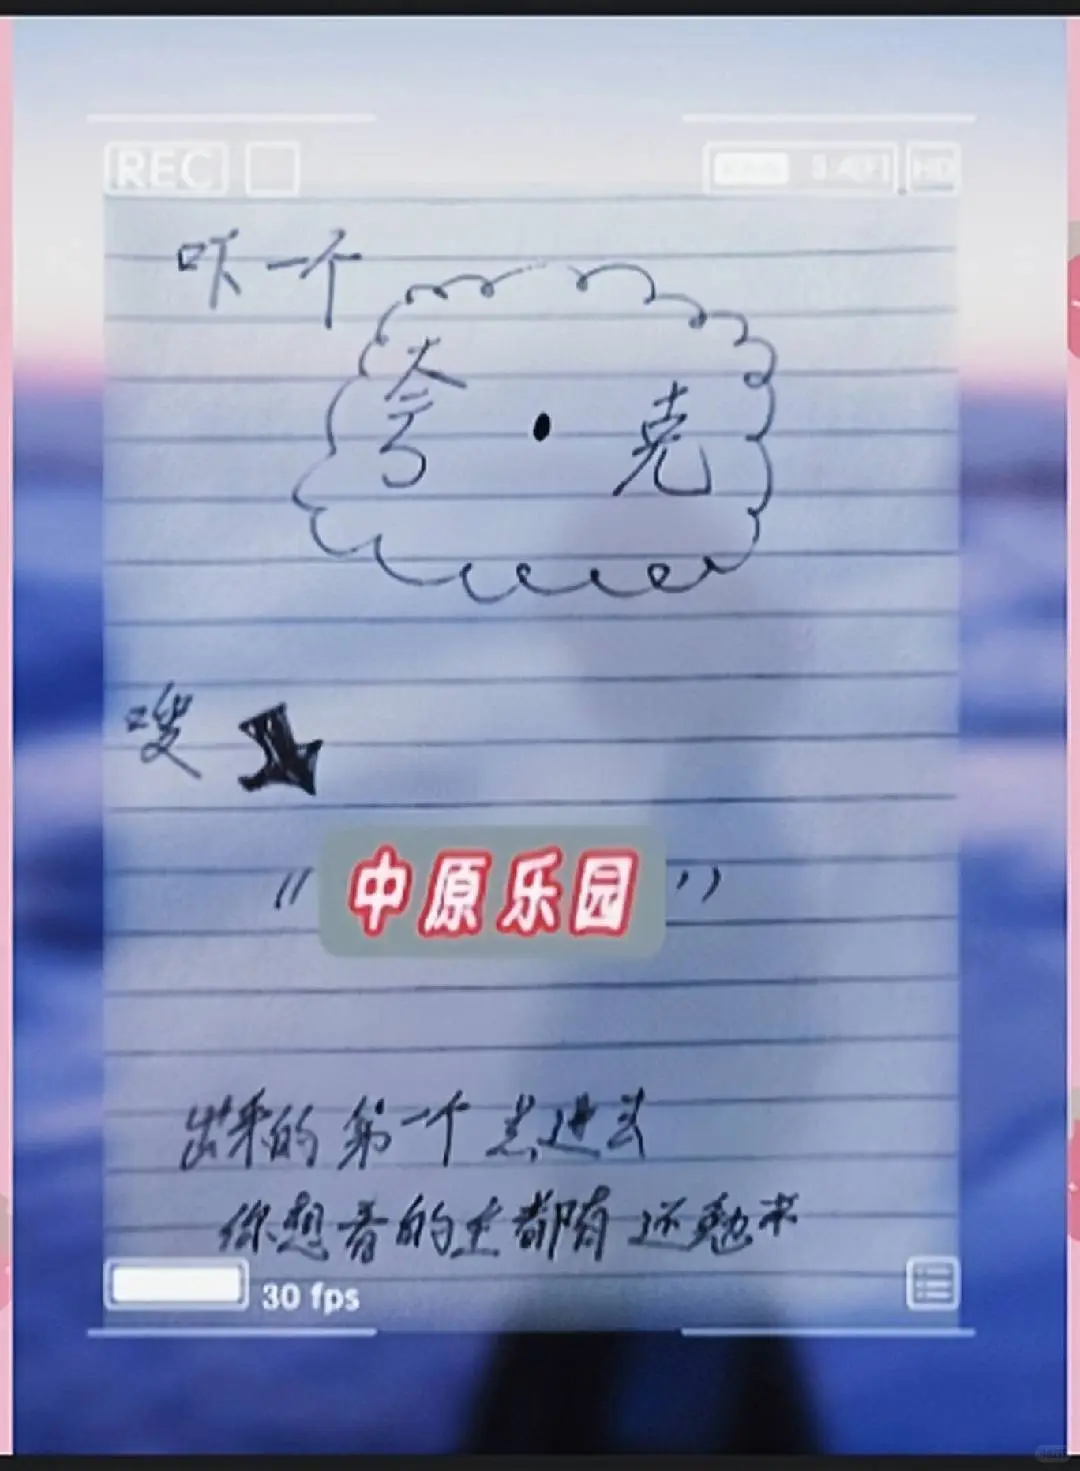 REC
HD
吓一个
夸·克
嗖
“中原乐园”
出来的第一个 点进去
你想看的主都有 还勉木
30 fps